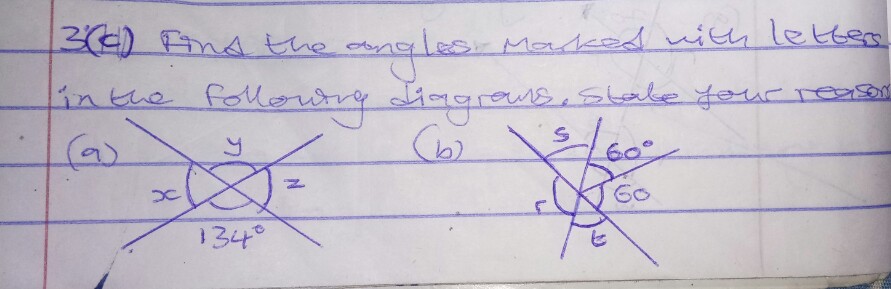 3(c) Find the angles marked with letters
in the following diagrams. State your reason
(a) y (b) s 60°
x z r 60
134° t